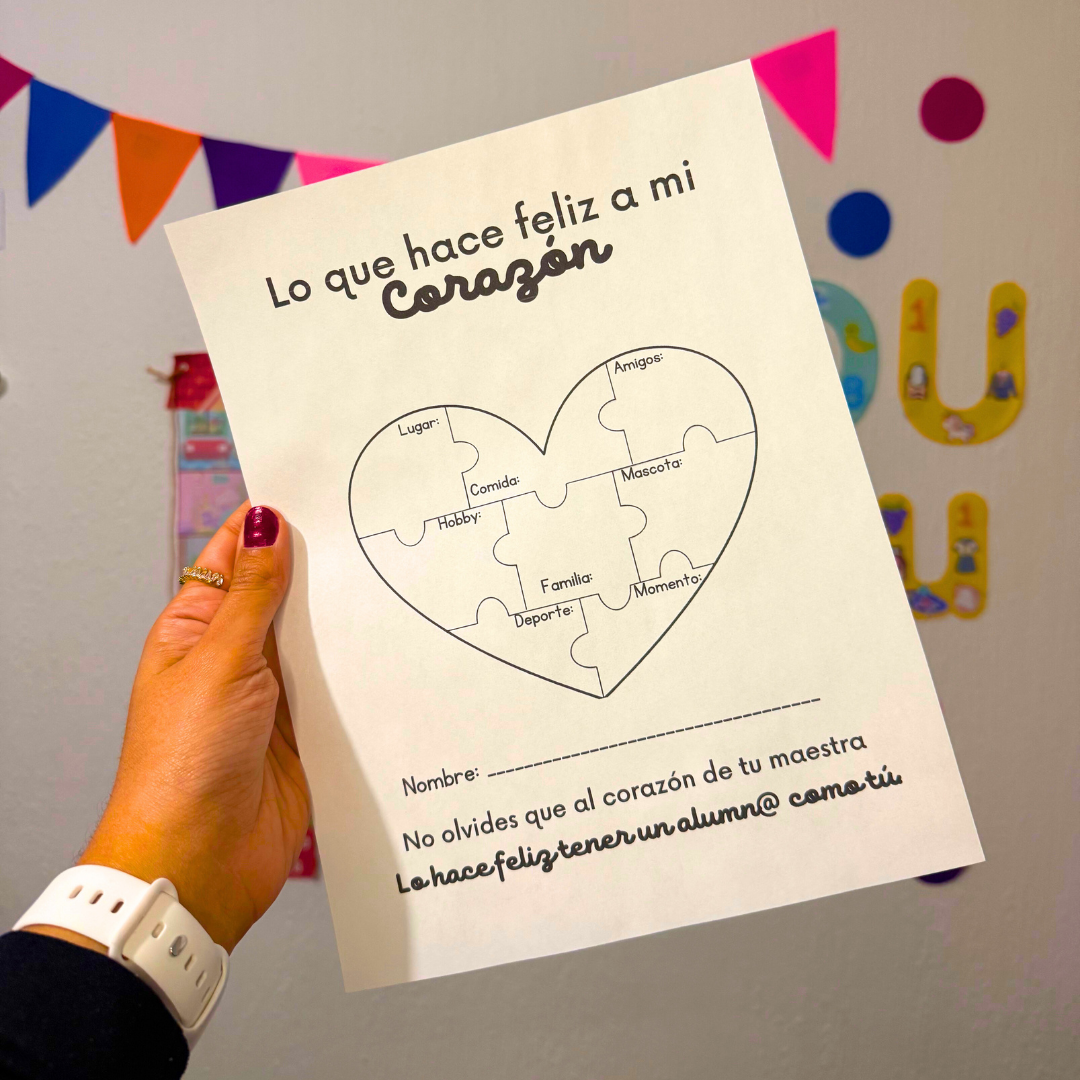 Lo que hace feliz a mi
Corazón
Amigos:
Lugar:
Comida:
Mascota:
Hobby:
Familia:
Momento:
Deporte:
Nombre: ______________________________
No olvides que al corazón de tu maestra
Lo hace feliz tener un alumn@ como tú.
OU
1
8
U
1